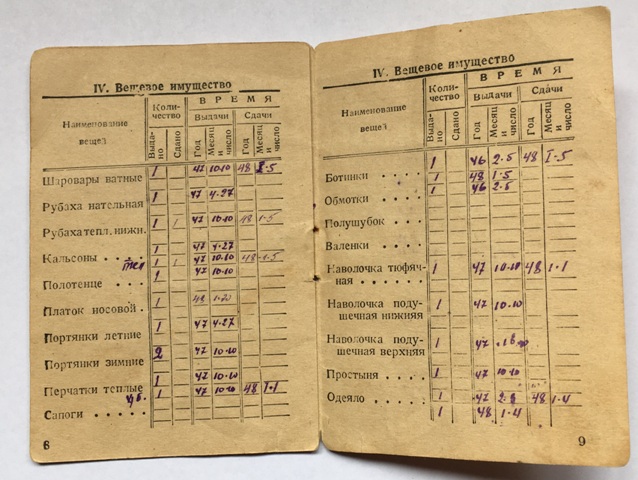 IV. Вещевое имущество
Наименование вещей
Количество
ВРЕМЯ
Выдачи
Сдачи
Выдано
Сдано
Год
Месяц и число
Год
Месяц и число
Шаровары ватные 1 47 10.10 48 1.5
Рубаха нательная 1 47 4.27
Рубаха тепл. нижн. 1 1 47 10.10 48 1.5
Кальсоны . . . . 1 47 4.27
тел 1 1 47 10.10 48 1.5
Полотенце . . . 1 47 10.10
Платок носовой . 1 48 1.20
Портянки летние 1 47 4.27
Портянки зимние 2 47 10.10
Перчатки теплые 1 47 10.10
1 47 10.10 48 1.1
Сапоги . . . . .
6
IV. Вещевое имущество
Наименование вещей
Количество
ВРЕМЯ
Выдачи
Сдачи
Выдано
Сдано
Год
Месяц и число
Год
Месяц и число
1 46 2.5 48 I.5
Ботинки . . . . 1 48 1.5
1 46 2.5
Обмотки . . . .
Полушубок . .
Валенки . . . .
Наволочка тюфяч-
ная . . . . . 1 47 10.10 48 1.1
Наволочка поду-
шечная нижняя 1 47 10.10
Наволочка поду-
шечная верхняя 1 47
Простыня . . . 1 47 10.10
Одеяло . . . . 1 47 48 1.4
1 48 1.4
9